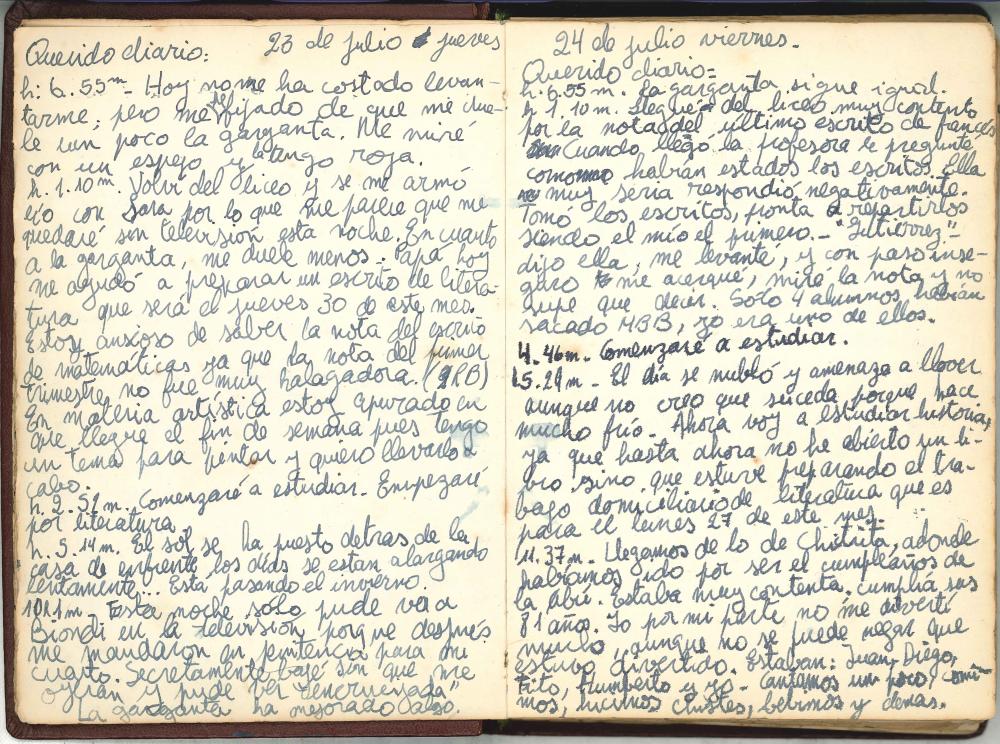 Querido diario: 23 de julio jueves
h: 6.55m - Hoy no me ha costado levan-
tarme; pero me he fijado de que me due-
le un poco la garganta. Me miré
con un espejo y la tengo roja.
h. 1.10m. Volví del liceo y se me armó
lío con Sara por lo que me parece que me
quedaré sin televisión esta noche. En cuanto
a la garganta, me duele menos. Papá hoy
me ayudó a preparar un escrito de litera-
tura que será el jueves 30 de este mes.
Estoy ansioso de saber la nota del escrito
de matemáticas ya que la nota del primer
trimestre no fue muy halagadora. (RB)
En materia artística estoy apurado en
que llegue el fin de semana pues tengo
un tema para pintar y quiero llevarlo a
cabo.
h. 2.51m. Comenzaré a estudiar. Empezaré
por literatura.
h. 5.14m. El sol se ha puesto detras de la
casa de enfrente, los días se estan alargando
lentamente... Está pasando el invierno.
Esta noche solo pude ver a
Biondi en la televisión porque después
me mandaron en penitencia para mi
cuarto. Secretamente bajé sin que me
oyeran y pude ver
La garganta ha mejorado algo.
24 de julio viernes.
Querido diario=
h. 6.55m. La garganta sigue igual.
h. 1.10m. Llegué del liceo muy contento
por la nota del último escrito de francés
Cuando llegó la profesora le pregunté
como habían estados los escritos. Ella
muy seria respondió negativamente.
Tomó los escritos, pronta a repartirlos
siendo el mío el primero. - "Gutiérrez" -
dijo ella; me levanté, y con paso inse-
guro me acerqué, miré la nota y no
supe que decir. Solo 4 alumnos habían
sacado MBB, yo era uno de ellos.
4.46m. Comenzaré a estudiar.
5.29m - El día se nubló y amenaza a llover
aunque no creo que suceda porque hace
mucho frío. Ahora voy a estudiar historia,
ya que hasta ahora no he abierto un li-
bro sino que estuve preparando el tra-
bajo domiciliario de literatura que es
para el lunes 27 de este mes.
11.37m. Llegamos de lo de Chitita, adonde
habíamos ido por ser el cumpleaños de
la abu. Estaba muy contenta, cumplía sus
81 años. Yo por mi parte no me divertí
mucho, aunque no se puede negar que
estuvo divertido. Estaban: Juan, Diego,
Tito, Humberto y yo. Cantamos un poco, comi-
mos, hicimos chistes, bebimos y demas.